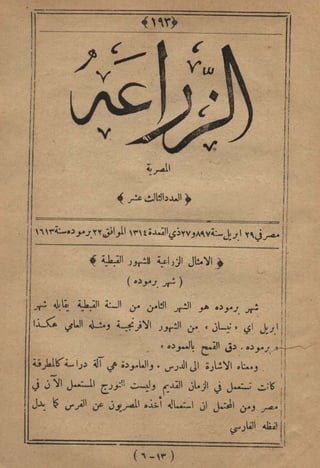 ﴿١٩٣﴾
الزراعة
المصرية
﴿ العدد الثالث عشر ﴾
مصر في ٢٩ ابريل سنة ٨٩٧ و٢٧ ذي القعدة ١٣١٤ الموافق ٢٢ برموده سنة ١٦١٣
﴿ الامثال الزراعية للشهور القبطية ﴾
( شهر برموده )
شهر برموده هو الشهر الثامن من السنة القبطية يقابله شهر
ابريل اي « نيسان » من الشهور الافرنجية ومثله العامي هكذا
« برموده . دق القمح بالعموده »
ومعناه الاشارة الى الدرس . والعامودة هي آلة دراسة كالمطرقة
كانت تستعمل في الزمان القديم وليست النورج المستعمل الآن في
مصر ومن المحتمل ان استعماله أخذه المصريون عن الفرس كما يدل
لفظه الفارسي
( ٦ – ١٣ )